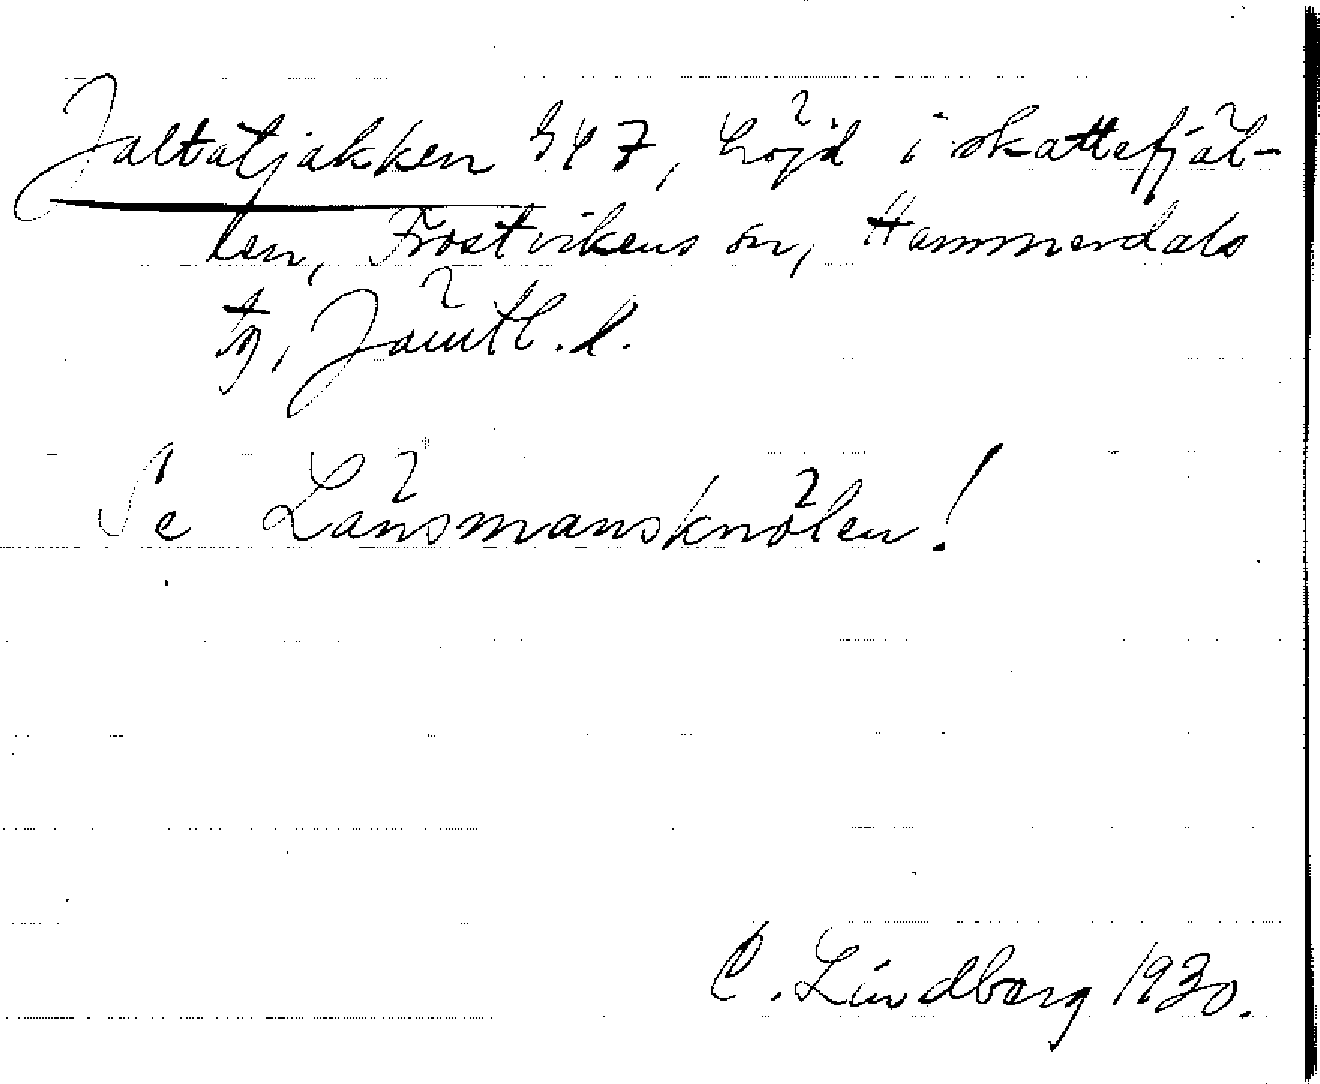 Jaltatjakken 947, höjd i skattefjäl-
len, Frostvikens sn, Hammerdals
tg, Jämtl. l.
Se Länsmansknölen!
C. Lindberg 1930.